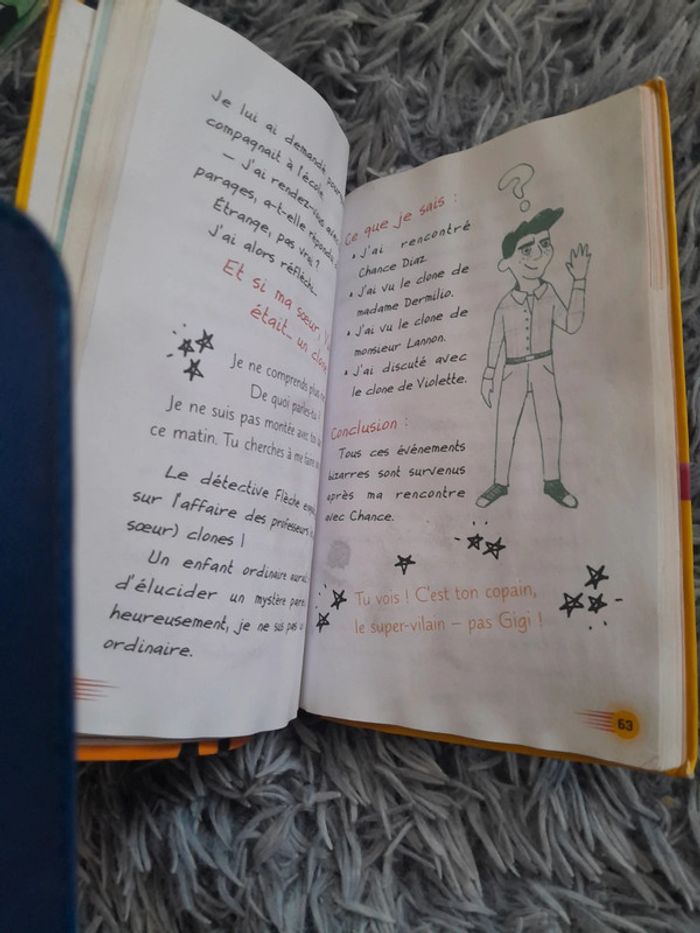 Je lui ai demandé
compagnait à l'école.
– J'ai rendez-vous avec
parages, a-t-elle répondu
Étrange, pas vrai ?
J'ai alors réfléchi...
Et si ma sœur,
était... un clone
Je ne comprends plus
De quoi parles-tu ?
Je ne suis pas montée avec
ce matin. Tu cherches à me faire
Le détective Flèche
sur l'affaire des professeurs
sœur) clones !
Un enfant ordinaire
d'élucider un mystère
heureusement, je ne suis pas
ordinaire.
Ce que je sais :
• J'ai rencontré
Chance Diaz
• J'ai vu le clone de
madame Dermilio.
• J'ai vu le clone de
monsieur Lannon.
• J'ai discuté avec
le clone de Violette.
Conclusion :
Tous ces événements
bizarres sont survenus
après ma rencontre
avec Chance.
Tu vois ! C'est ton copain,
le super-vilain – pas Gigi !
63